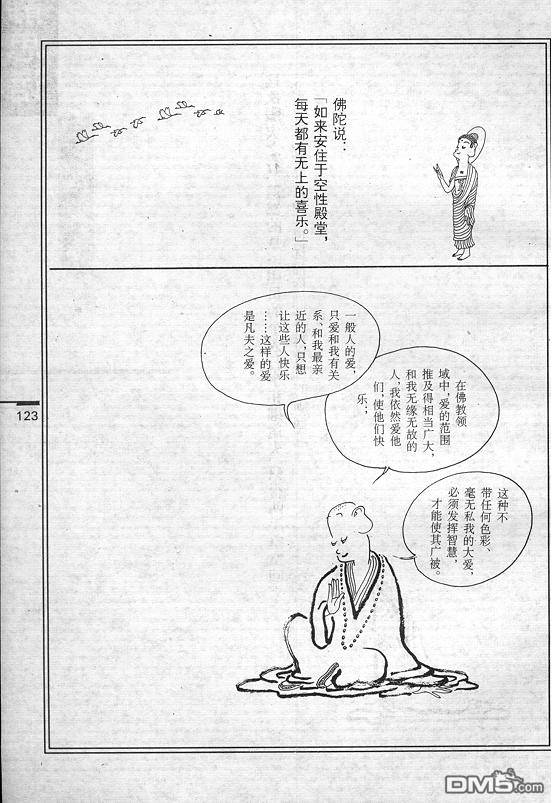 佛陀说：
「如来安住于空性殿堂，
每天都有无上的喜乐。」
一般人的爱，
只爱和我有关
系、和我最亲
近的人，只想
让这些人快乐
……这样的爱
是凡夫之爱。
在佛教领
域中，爱的范围
推及得相当广大，
和我无缘无故的
人，我依然爱他
们，使他们快
乐；
这种不
带任何色彩、
毫无私我的大爱，
必须发挥智慧，
才能使其广被。
123
DM5.com